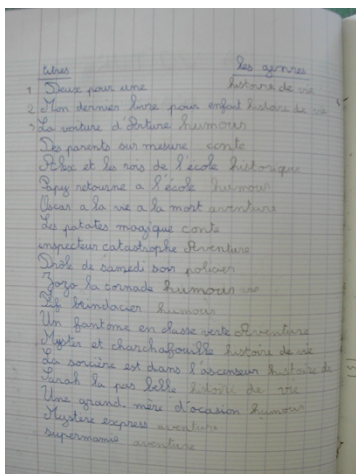 titres les genres
1 Deux pour une histoire de vie
2 Mon dernier livre pour enfant histoire de vie
3 La voiture d'Arture humour
Des parents sur mesure conte
Alex et les rois de l'école historique
Papy retourne a l'école humour
Oscar a la vie a la mort aventure
Les patates magique conte
inspecteur catastrophe Aventure
Drôle de samedi soir policier
Jojo la cornade humour vie
Fif brindacier humour
Un fantôme en classe verte Aventure
Myster et charchafouille histoire de vie
La sorcière est dans l'ascenseur histoire de
Sarah la pas belle histoire de vie
Une grand mère d'ocasion humour
Mystère express aventure
supermamie aventure